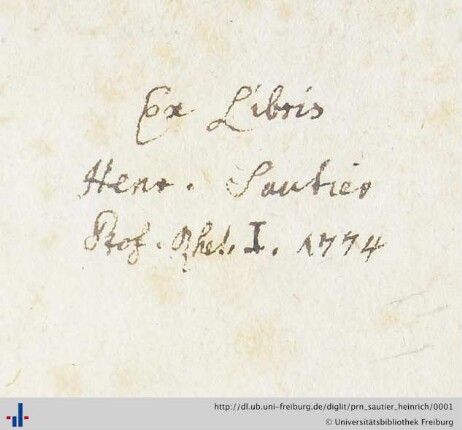 Ex Libris
Henr. Sautier
Prof. Rhet. I. 1774
http://dl.ub.uni-freiburg.de/diglit/prn_sautier_heinrich/0001
© Universitätsbibliothek Freiburg